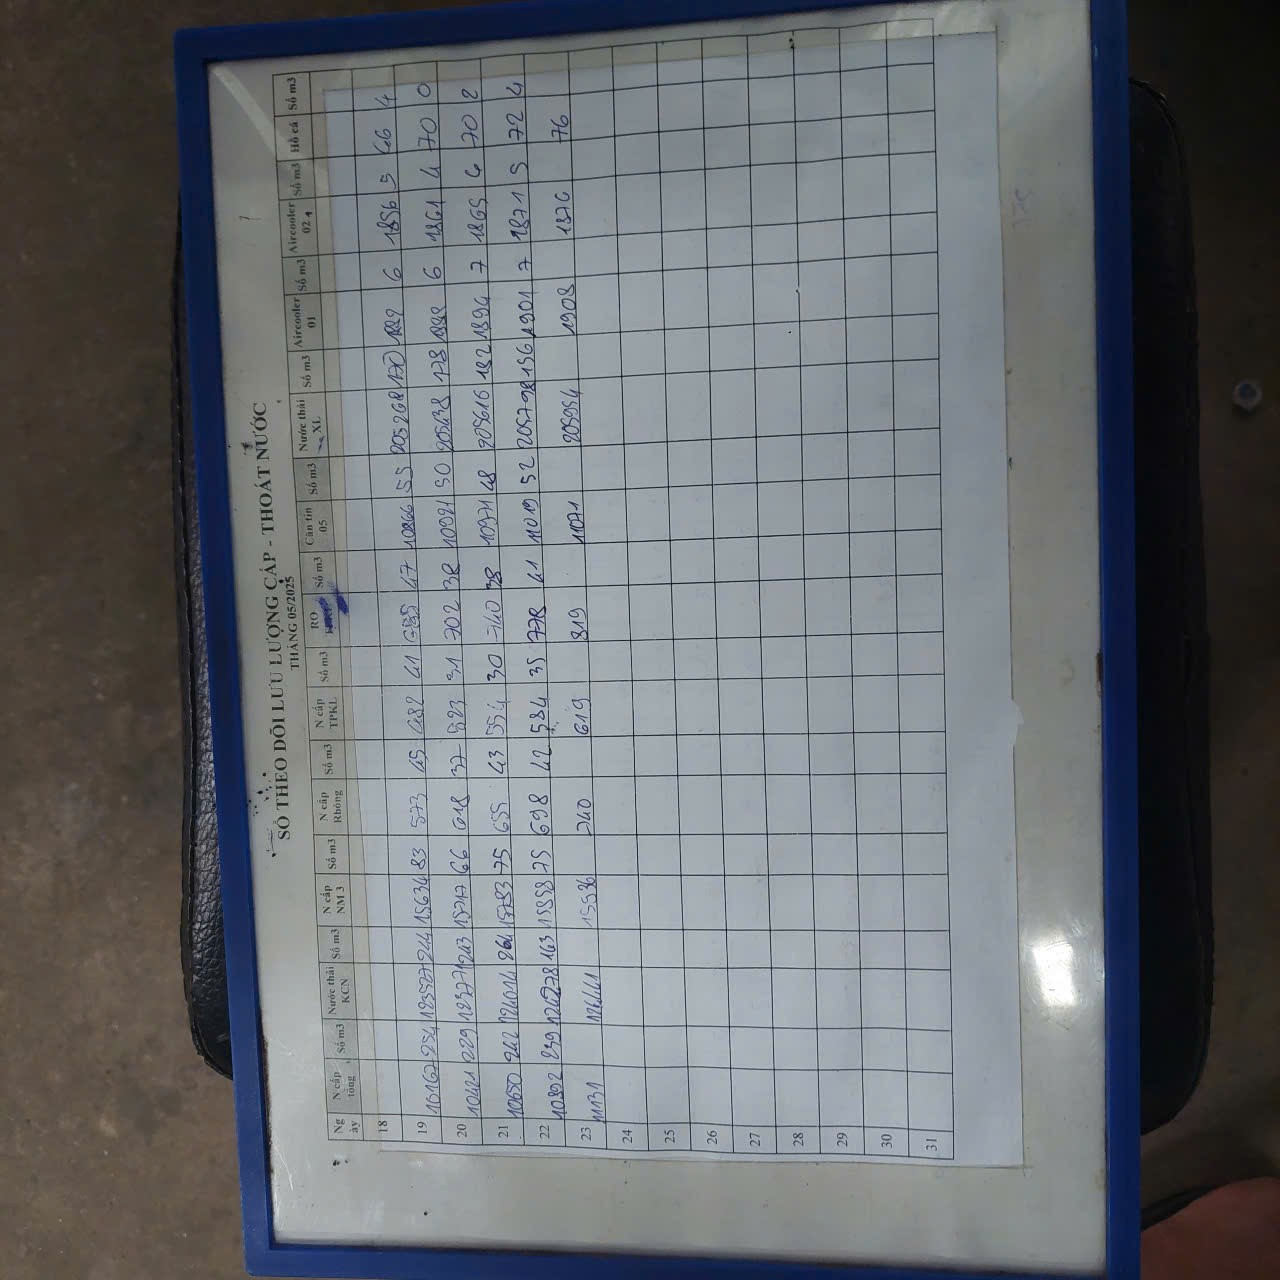 SỔ THEO DÕI LƯU LƯỢNG CẤP - THOÁT NƯỚC
THÁNG 05/2025
Ng ày N cấp tổng Số m3 Nước thải KCN Số m3 N cấp NM 3 Số m3 N cấp Rhông Số m3 N cấp TPKL Số m3 RO Số m3 Căn tin 05 Số m3 Nước thải XL Số m3 Aircooler 01 Số m3 Aircooler 02 Số m3 Hồ cá Số m3
18
19 10167 254 123527 244 15634 83 573 45 482 41 655 47 10866 55 205268 170 1882 6 1856 5 66 4
20 10421 229 123771 243 15717 66 618 37 523 31 702 38 10921 50 205438 178 1888 6 1861 4 70 0
21 10650 242 124014 264 15783 75 655 43 554 30 740 38 10971 48 205616 182 1894 7 1865 6 70 2
22 10892 239 124278 163 15858 75 698 42 584 35 778 41 11019 52 205798 156 1901 7 1871 5 72 4
23 11131 124441 15936 740 619 819 11071 205954 1908 1876 76
24
25
26
27
28
29
30
31